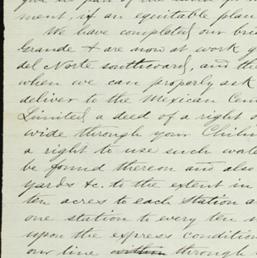 ment, if an equitable plan
We have completed our bri
Grande & are now at work g
del Norte southward, and th
when we can properly ask
deliver to the Mexican Cen
Limited, a deed of a right o
wide through your Chihu
a right to use such wate
be found thereon and also
yards &c. to the extent in
ten acres to each station a
one station to every ten m
upon the express condition
our line within through